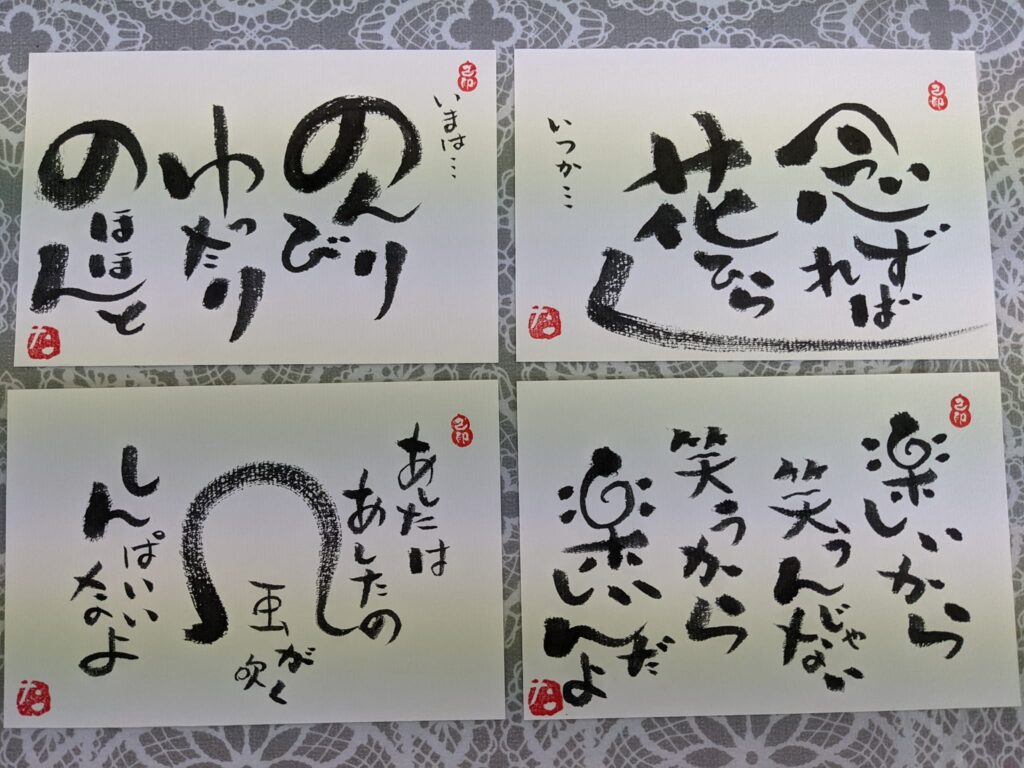 いまは…
のんびり
ゆったり
のほほんと
念ずれば
花ひらく
いつか…
あしたは
あしたの
風が
吹く
しんぱいい
楽しいから
笑うんじゃない
笑うから
楽しいんだよ